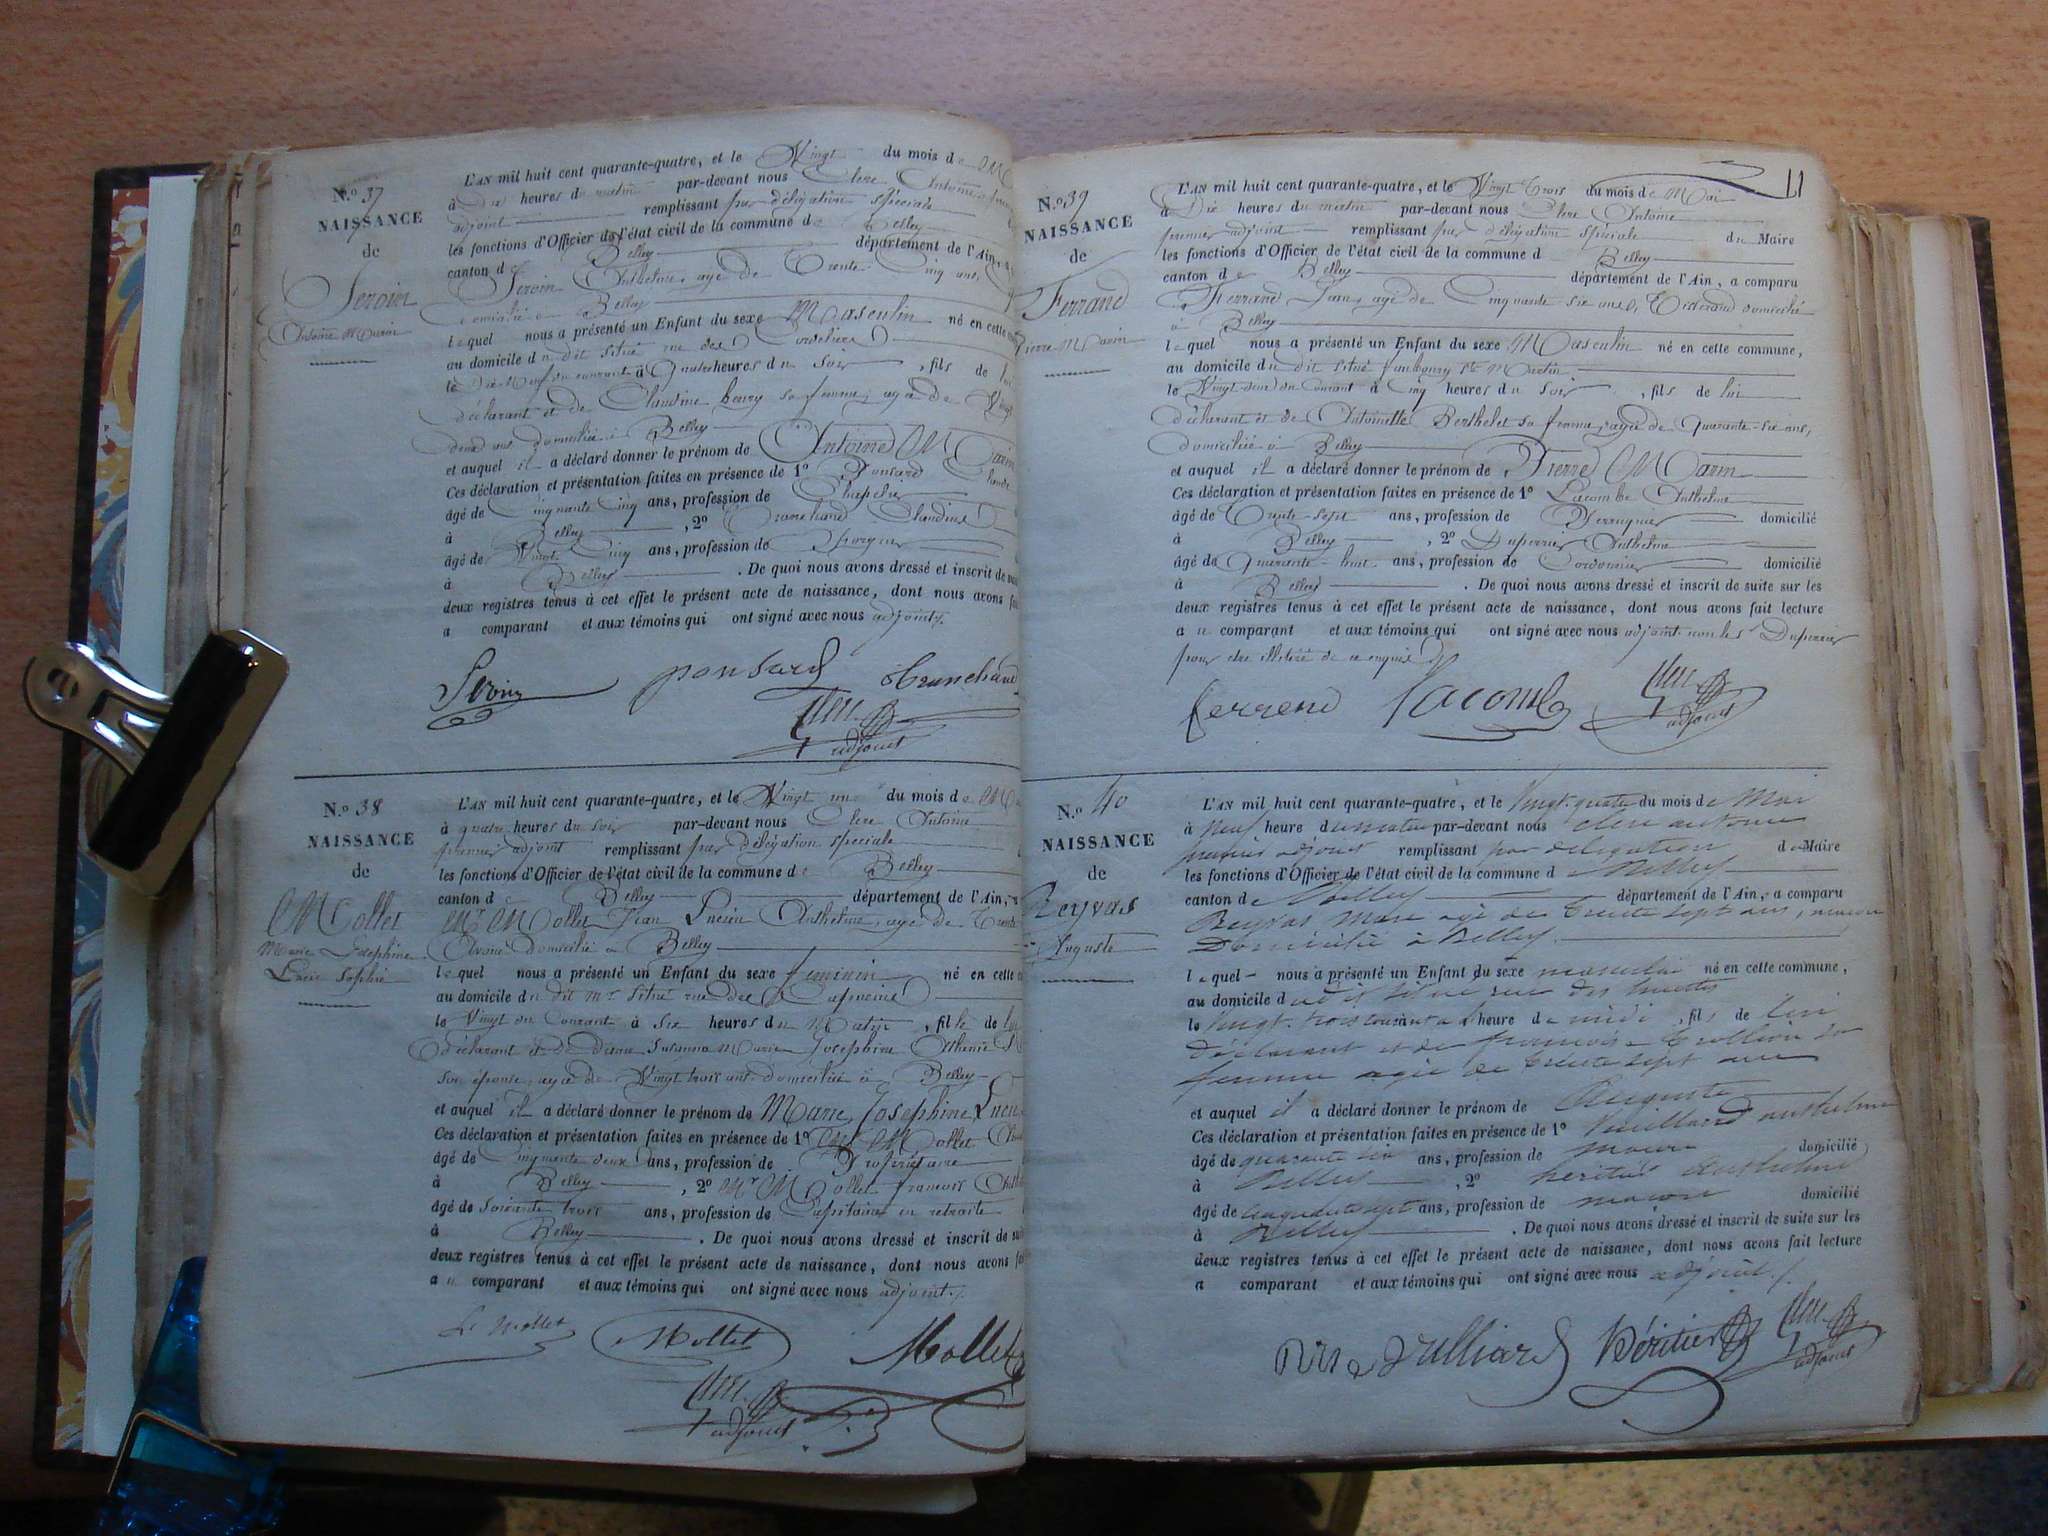 N.º 37
NAISSANCE
de
Antoine Marin
L'AN mil huit cent quarante-quatre, et le Vingt du mois de
à dix heures du matin par-devant nous Clerc Antoine
adjoint remplissant par délégation spéciale
les fonctions d'Officier de l'état civil de la commune de Belley
canton de Belley département de l'Ain,
Anthelme, agé de Trente Cinq ans,
domicilié à Belley
lequel nous a présenté un Enfant du sexe Masculin né en cette
au domicile du dit situé rue des Cordeliers
le Dix Neuf du courant à Quatre heures du soir, fils de lui
déclarant et de Claudine sa femme, agée de Vingt
deux ans domiciliée à Belley
et auquel il a déclaré donner le prénom de Antoine Marin
Ces déclaration et présentation faites en présence de 1º Ponsard Claude
âgé de Cinquante Cinq ans, profession de
à Belley, 2º Tranchand Claudius
âgé de Vingt Cinq ans, profession de
à Belley. De quoi nous avons dressé et inscrit de
deux registres tenus à cet effet le présent acte de naissance, dont nous avons
a comparant et aux témoins qui ont signé avec nous adjoint
ponsard
Tranchand
adjoint
N.º 38
NAISSANCE
de
Mollet
Marie Josephine
Lucie Sophie
L'AN mil huit cent quarante-quatre, et le Vingt un du mois de
à quatre heures du soir par-devant nous Clerc Antoine
premier adjoint remplissant par délégation speciale
les fonctions d'Officier de l'état civil de la commune de Belley
canton de Belley département de l'Ain,
Mr Mollet Jean Lucien Anthelme, agé de Trente
Avoué domicilié à Belley
lequel nous a présenté un Enfant du sexe feminin né en cette
au domicile du dit Mr situé rue des Capucins
le Vingt du Courant à six heures du Matin, fille de lui
déclarant et de dame Susanna Marie Josephine
son épouse, agée de Vingt trois ans domiciliée à Belley
et auquel il a déclaré donner le prénom de Marie, Josephine
Ces déclaration et présentation faites en présence de 1º Mr Mollet
âgé de Cinquante deux ans, profession de Propriétaire
à Belley, 2º Mr Mollet françois
âgé de soixante trois ans, profession de Capitaine en retraite
à Belley. De quoi nous avons dressé et inscrit de
deux registres tenus à cet effet le présent acte de naissance, dont nous avons
au comparant et aux témoins qui ont signé avec nous adjoint
Mollet
Mollet
Mollet
adjoint
11
N.º 39
NAISSANCE
de
Ferrand
Pierre Marin
L'AN mil huit cent quarante-quatre, et le Vingt Trois du mois de Mai
à Dix heures du matin par-devant nous Clerc Antoine
premier adjoint remplissant par délégation spéciale du Maire
les fonctions d'Officier de l'état civil de la commune d Belley
canton de Belley département de l'Ain, a comparu
Ferrand Jean, agé de Cinquante six ans, Tisserand domicilié
à Belley
lequel nous a présenté un Enfant du sexe Masculin né en cette commune,
au domicile du dit situé faubourg St Martin
le Vingt deux du Courant à Cinq heures du soir, fils de lui
déclarant et de Antoinette Berthelet sa femme, agée de Quarante-six ans,
domiciliée à Belley
et auquel il a déclaré donner le prénom de Pierre Marin
Ces déclaration et présentation faites en présence de 1º Lacombe Anthelme
âgé de Trente-sept ans, profession de Perruquier domicilié
à Belley, 2º Duperrier Anthelme
âgé de Quarante-huit ans, profession de Cordonnier domicilié
à Belley. De quoi nous avons dressé et inscrit de suite sur les
deux registres tenus à cet effet le présent acte de naissance, dont nous avons fait lecture
au comparant et aux témoins qui ont signé avec nous adjoint non led. Duperrier
pour être illitéré de ce enquis
ferrand
Lacombe
adjoint
N.º 40
NAISSANCE
de
Reyvas
Auguste
L'AN mil huit cent quarante-quatre, et le Vingt-quatre du mois de Mai
à Neuf heure du matin par-devant nous clerc antoine
premier adjoint remplissant par délégation du Maire
les fonctions d'Officier de l'état civil de la commune d Belley
canton de Belley département de l'Ain, a comparu
Reyvas Marc agé de trente sept ans, maçon
Domicilié à Belley
lequel nous a présenté un Enfant du sexe masculin né en cette commune,
au domicile du dit situé rue des
le Vingt-trois courant à heure de midi, fils de lui
déclarant et de françoise Trollion sa
femme agée de trente sept ans
et auquel il a déclaré donner le prénom de Auguste
Ces déclaration et présentation faites en présence de 1º Vuilliard anthelme
âgé de quarante six ans, profession de domicilié
à Belley, 2º héritier Anthelme
âgé de Cinquante sept ans, profession de maçon domicilié
à Belley. De quoi nous avons dressé et inscrit de suite sur les
deux registres tenus à cet effet le présent acte de naissance, dont nous avons fait lecture
a comparant et aux témoins qui ont signé avec nous adjoint
Héritier
adjoint